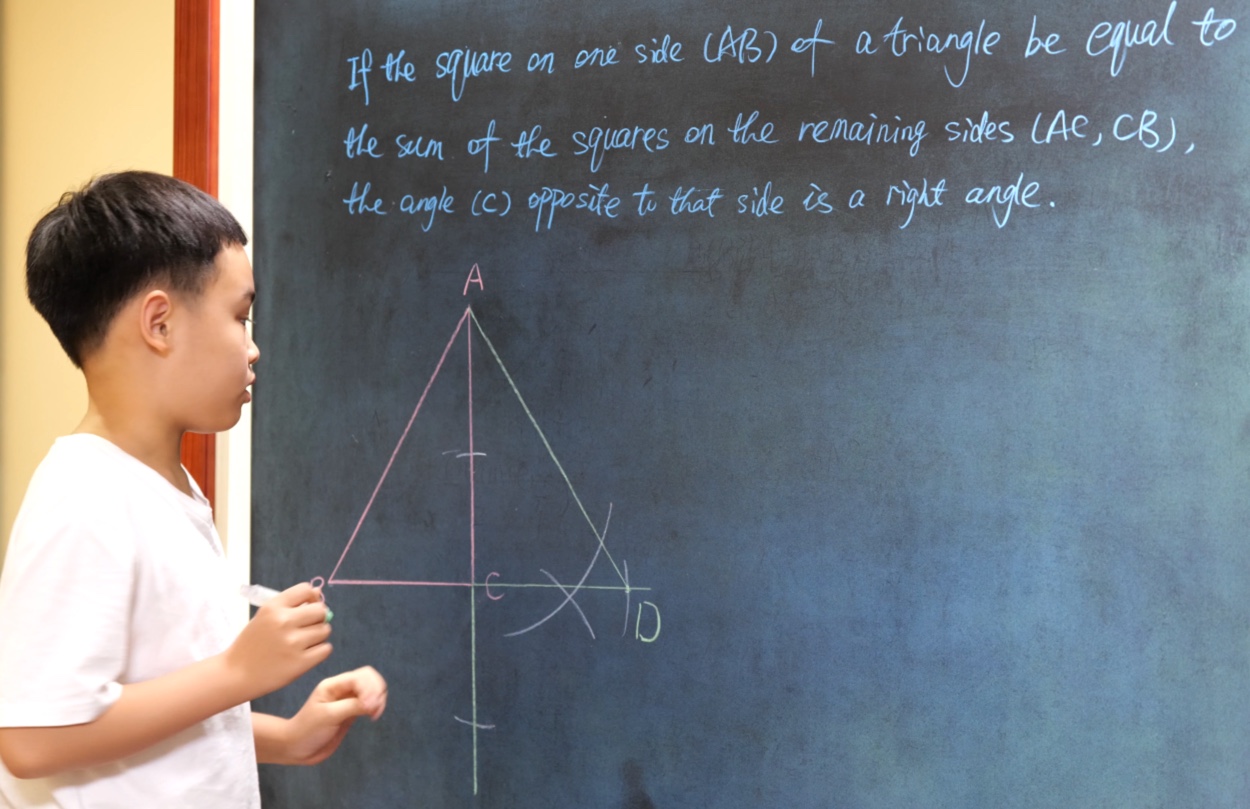 If the square on one side (AB) of a triangle be equal to
the sum of the squares on the remaining sides (AC, CB),
the angle (C) opposite to that side is a right angle.
A
C
D